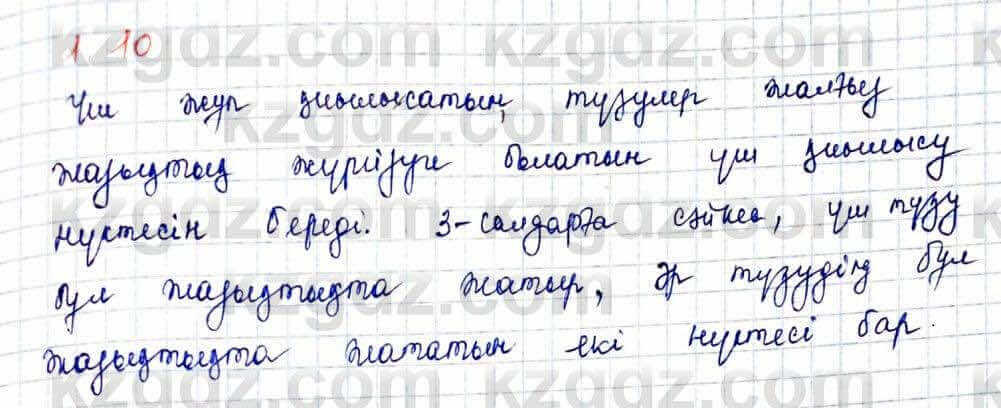 1.10
Үш жұп қиылысатын, түзулер жалғыз
жазықтық жүргізуге болатын үш қиылысу
нүктесін береді. 3-салдарға сәйкес, үш түзу
бұл жазықтықта жатыр, әр түзудің бұл
жазықтықта жататын екі нүктесі бар.